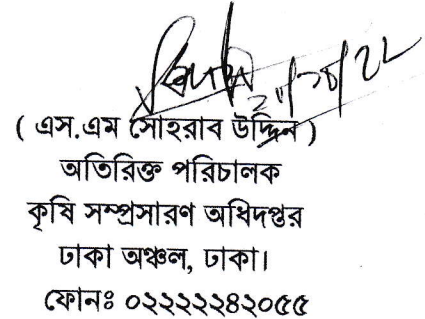 ( এস.এম সোহরাব উদ্দিন )
অতিরিক্ত পরিচালক
কৃষি সম্প্রসারণ অধিদপ্তর
ঢাকা অঞ্চল, ঢাকা।
ফোনঃ ০২২২২২৪২০৫৫